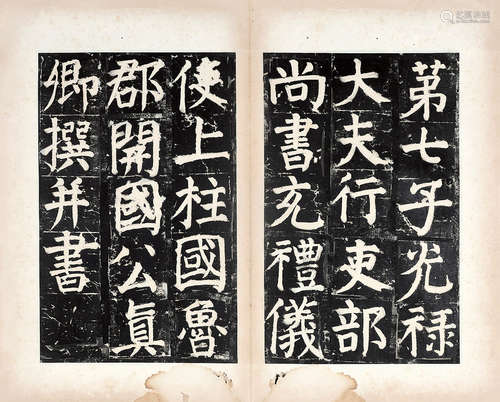 第七子光禄
大夫行吏部
尚書充禮儀
使上柱國魯
郡開國公真
卿撰并書